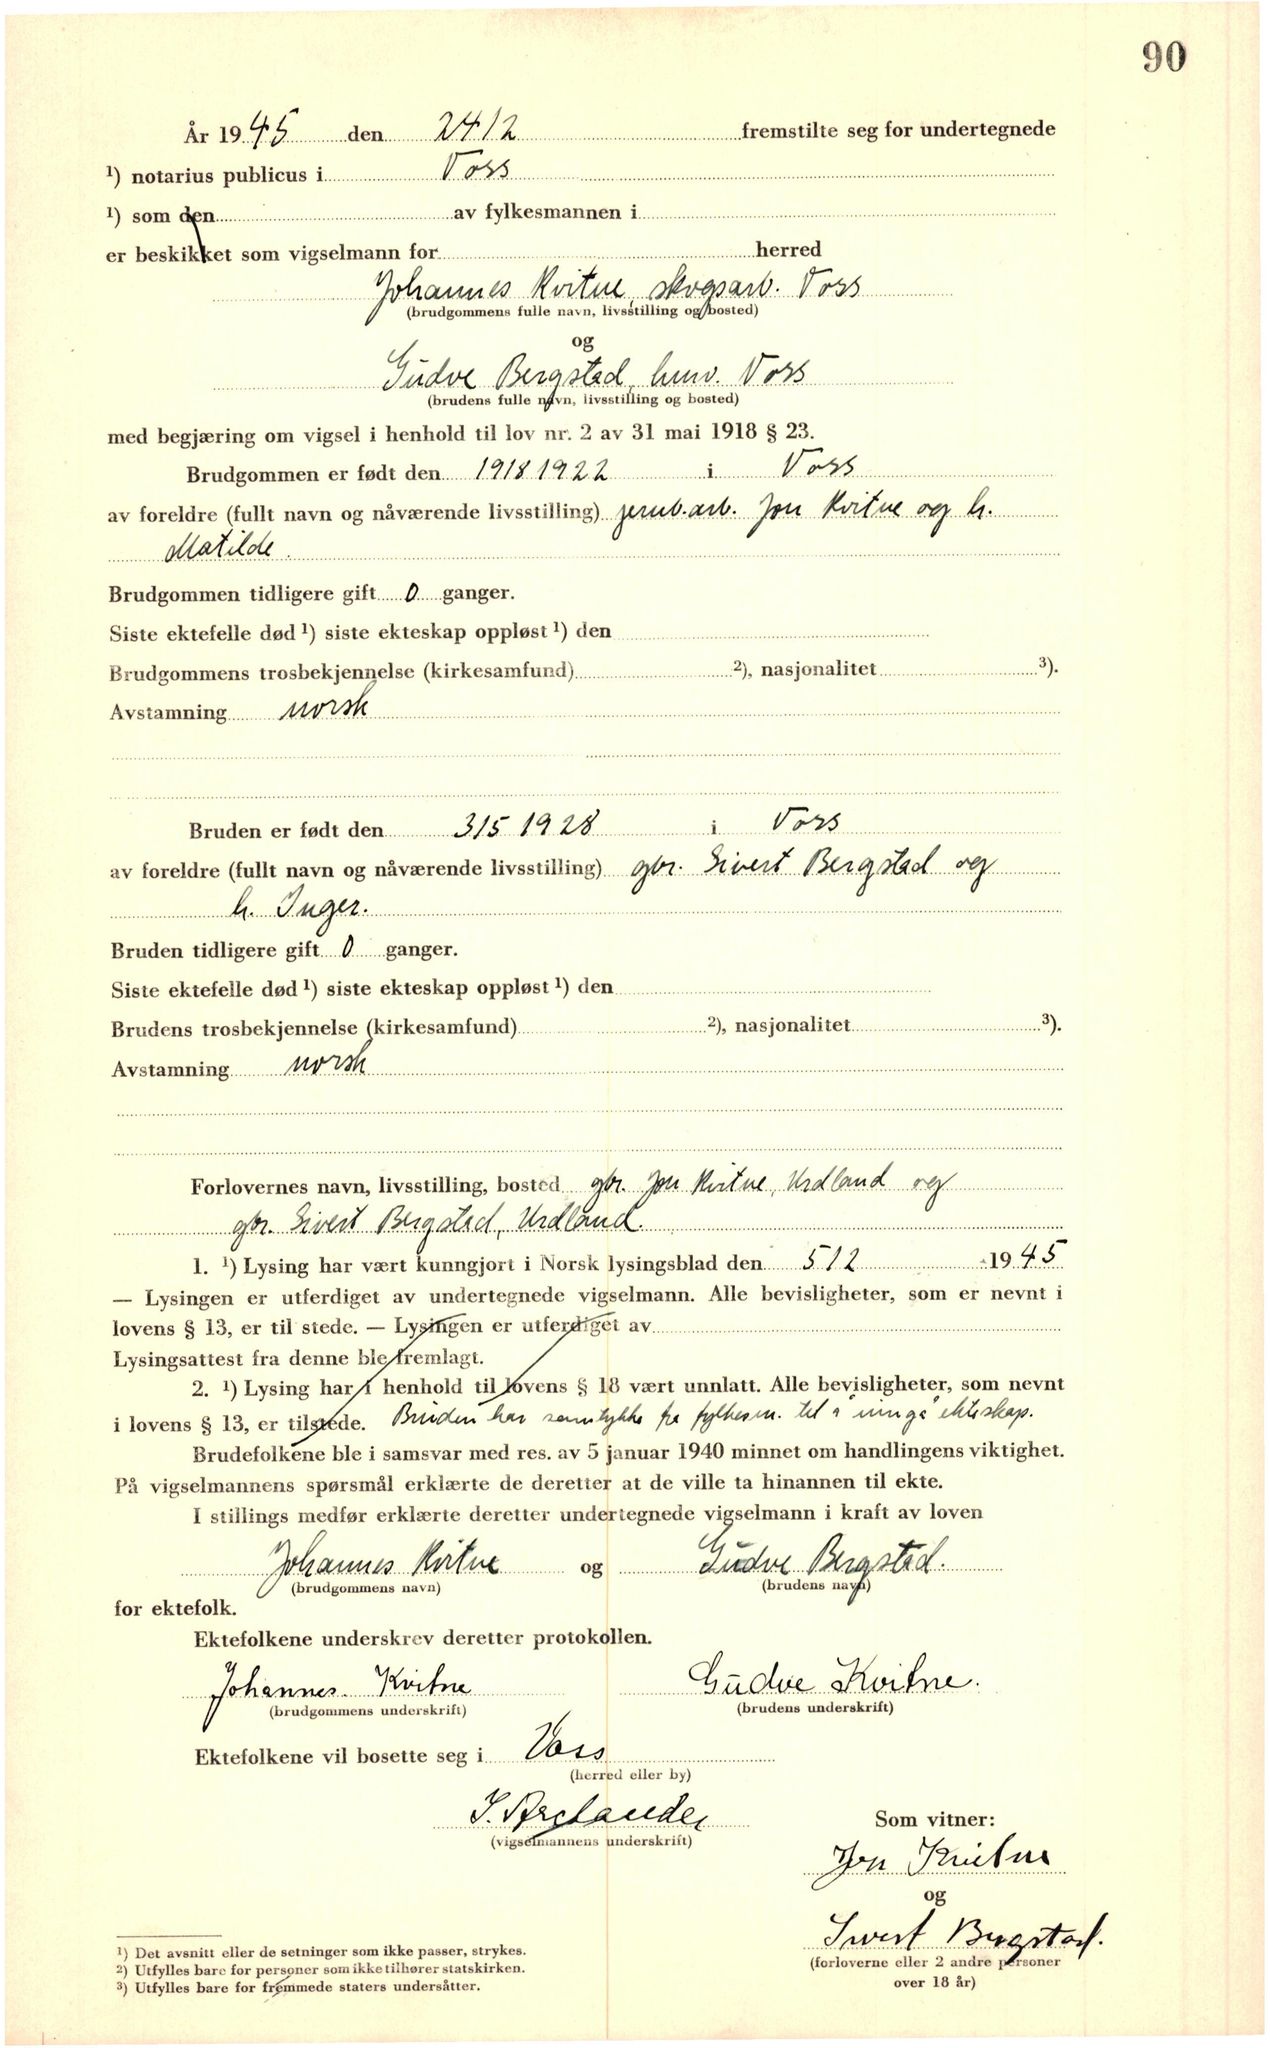 90
År 1945 den 24 12 fremstilte seg for undertegnede
¹) notarius publicus i Voss
¹) som den av fylkesmannen i
er beskikket som vigselmann for herred
Johannes Kvitne, skogsarb. Voss
(brudgommens fulle navn, livsstilling og bosted)
og
Gudve Bergstad, husv. Voss
(brudens fulle navn, livsstilling og bosted)
med begjæring om vigsel i henhold til lov nr. 2 av 31 mai 1918 § 23.
Brudgommen er født den 19 18 1922 i Voss
av foreldre (fullt navn og nåværende livsstilling) jernb.arb. Jon Kvitne og h.
Matilde.
Brudgommen tidligere gift 0 ganger.
Siste ektefelle død ¹) siste ekteskap oppløst ¹) den
Brudgommens trosbekjennelse (kirkesamfund) ²), nasjonalitet ³).
Avstamning norsk
Bruden er født den 31 5 1928 i Voss
av foreldre (fullt navn og nåværende livsstilling) gbr. Sivert Bergstad og
h. Inger.
Bruden tidligere gift 0 ganger.
Siste ektefelle død ¹) siste ekteskap oppløst ¹) den
Brudens trosbekjennelse (kirkesamfund) ²), nasjonalitet ³).
Avstamning norsk
Forlovernes navn, livsstilling, bosted gbr. Jon Kvitne, Urdland og
gbr. Sivert Bergstad, Urdland.
1. ¹) Lysing har vært kunngjort i Norsk lysingsblad den 5 12 1945
— Lysingen er utferdiget av undertegnede vigselmann. Alle bevisligheter, som er nevnt i
lovens § 13, er til stede. — Lysingen er utferdiget av
Lysingsattest fra denne ble fremlagt.
2. ¹) Lysing har i henhold til lovens § 18 vært unnlatt. Alle bevisligheter, som nevnt
i lovens § 13, er tilstede. Bruden har samtykke fra fylkesm. til å inngå ekteskap.
Brudefolkene ble i samsvar med res. av 5 januar 1940 minnet om handlingens viktighet.
På vigselmannens spørsmål erklærte de deretter at de ville ta hinannen til ekte.
I stillings medfør erklærte deretter undertegnede vigselmann i kraft av loven
Johannes Kvitne og Gudve Bergstad.
(brudgommens navn) (brudens navn)
for ektefolk.
Ektefolkene underskrev deretter protokollen.
Johannes Kvitne Gudve Kvitne.
(brudgommens underskrift) (brudens underskrift)
Ektefolkene vil bosette seg i Voss
(herred eller by)
(vigselmannens underskrift)
Som vitner:
Jon Kvitne
og
Sivert Bergstad.
(forloverne eller 2 andre personer
over 18 år)
¹) Det avsnitt eller de setninger som ikke passer, strykes.
²) Utfylles bare for personer som ikke tilhører statskirken.
³) Utfylles bare for fremmede staters undersåtter.